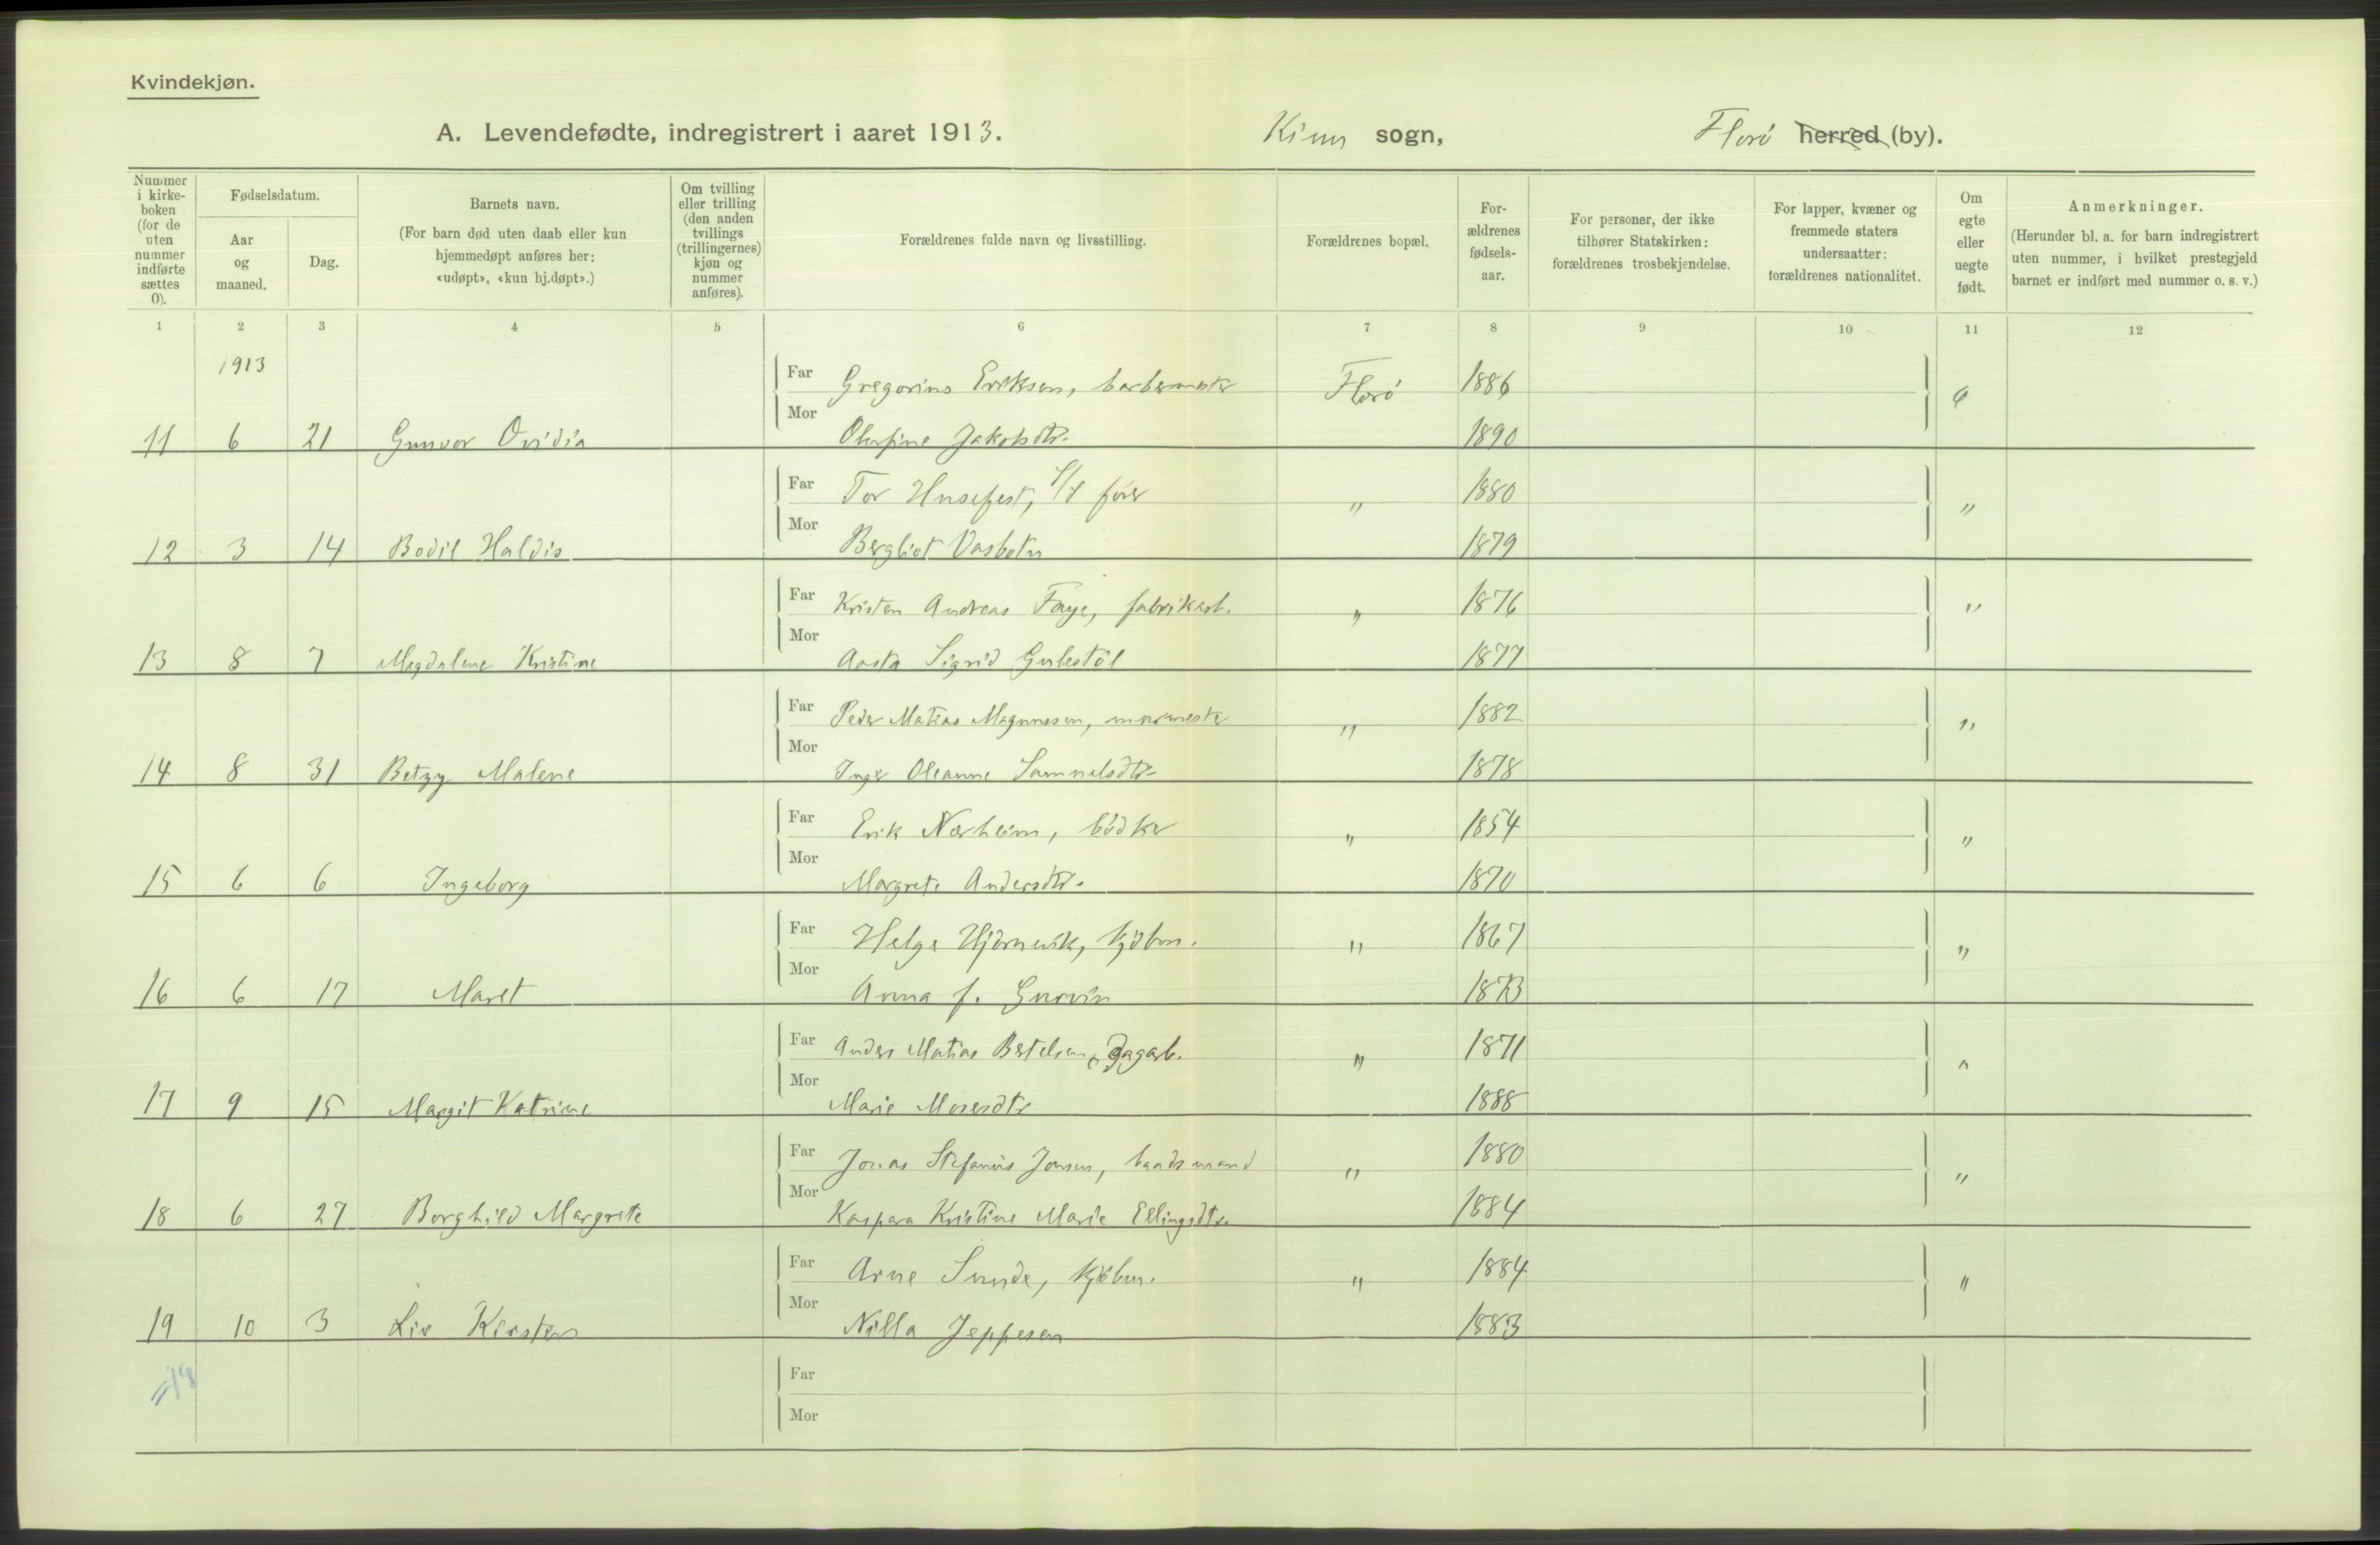 Kvindekjøn.
A. Levendefødte, indregistrert i aaret 1913. Kinn sogn, Florö herred (by).
Nummer i kirke-boken (for de uten nummer indførte sættes 0).
Fødselsdatum.
Aar og maaned.
Dag.
Barnets navn.
(For barn død uten daab eller kun hjemmedøpt anføres her: «udøpt», «kun hj.døpt».)
Om tvilling eller trilling (den anden tvillings (trillingernes) kjøn og nummer anføres).
Forældrenes fulde navn og livsstilling.
Forældrenes bopæl.
For-ældrenes fødsels-aar.
For personer, der ikke tilhører Statskirken: forældrenes trosbekjendelse.
For lapper, kvæner og fremmede staters undersaatter: forældrenes nationalitet.
Om egte eller uegte født.
Anmerkninger.
(Herunder bl. a. for barn indregistrert uten nummer, i hvilket prestegjeld barnet er indført med nummer o. s. v.)
1 2 3 4 5 6 7 8 9 10 11 12
1913
Far Gregorius Eriksen, barbermester Florö 1886 e
11 6 21 Gunvor Ovidia Mor Olufine Jakobsdtr. 1890
Far Tor Husefest, S/S förer " 1880 "
12 3 14 Bodil Haldis Mor Bergliot Vasbotn 1879
Far Kristen Andreas Faye, fabrikarb. " 1876 "
13 8 7 Magdalene Kristine Mor Aasta Sigrid Gulestöl 1877
Far Peder Matias Magnussen, murmester " 1882 "
14 8 31 Betzy Malene Mor Inger Oleanne Samuelsdtr. 1878
Far Erik Nærheim, bödker " 1854 "
15 6 6 Ingeborg Mor Margrete Andersdtr. 1870
Far Helge Hjörnevik, kjöbm. " 1867 "
16 6 17 Maret Mor Anna f. Gurvin 1873
Far Anders Matias Bertelsen, Dagarb. " 1871 "
17 9 15 Margit Katrine Mor Marie Mosesdtr 1888
Far Jonas Stefanus Jonsen, baadsmand " 1880 "
18 6 27 Borghild Margrete Mor Kaspara Kristine Marie Ellingsdtr. 1884
Far Arne Sunde, kjöbm. " 1884 "
19 10 3 Liv Kirsten Mor Nilla Jeppesen 1883
=19
Far
Mor